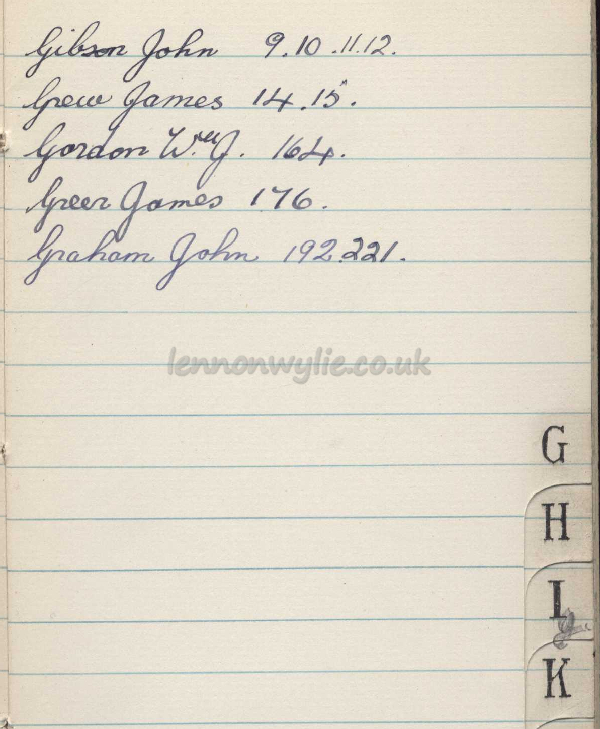 Gibson John 9.10.11.12.
Grew James 14.15.
Gordon Wm J. 164.
Greer James 176.
Graham John 192.221.
lennonwylie.co.uk
G
H
I
J
K